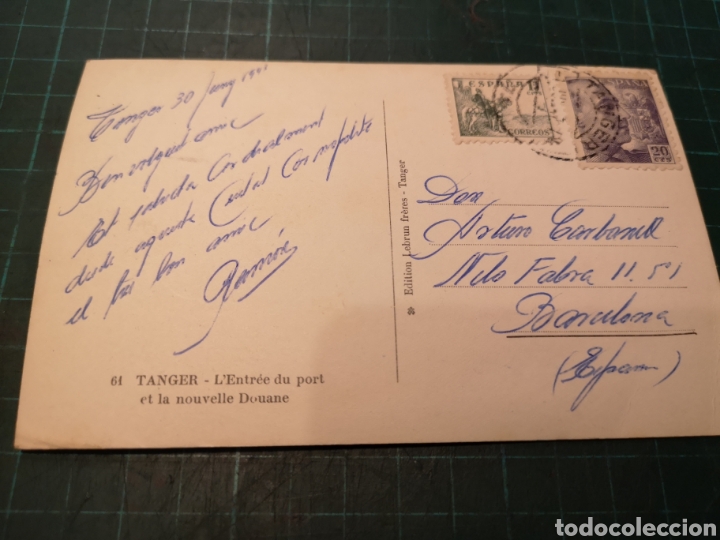 Tanger 30 Juny 1941
Benvolgut amic
Et saluda Cordialment
desde aquesta Ciutat Cosmopolita
el teu bon amic
Ramón
61 TANGER - L'Entrée du port
et la nouvelle Douane
Edition Lebrun frères - Tanger
ESPAÑA
CORREOS
TANGER
20
CTS
Don
Arturo Carbonell
Nilo Fabra 11. 5º 1
Barcelona
(España)
todocoleccion.net